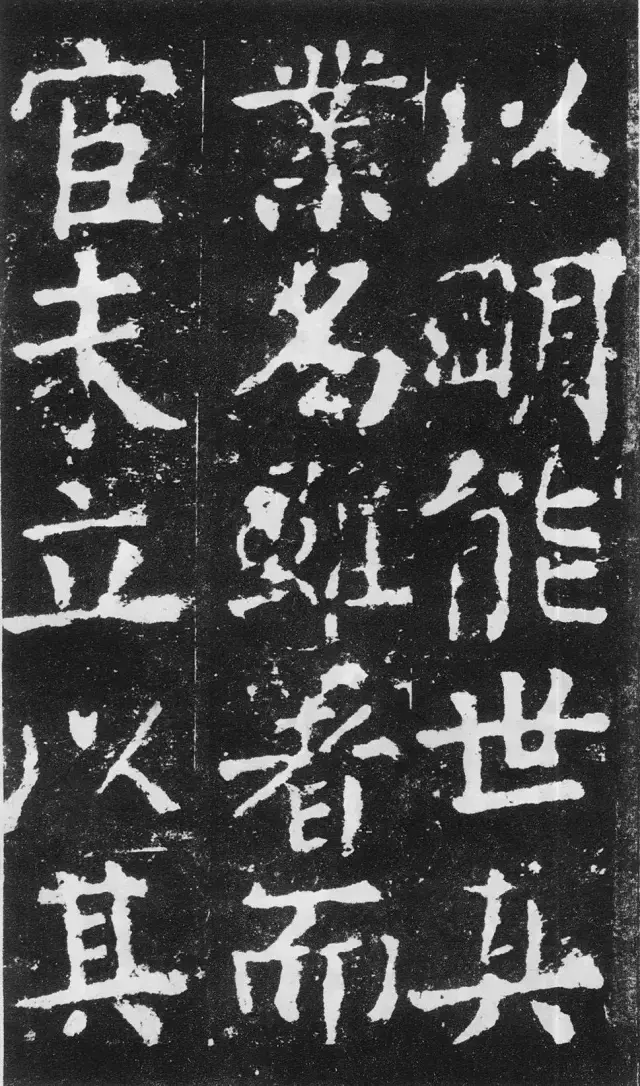 以明能世其
業名雖著而
官未立以其